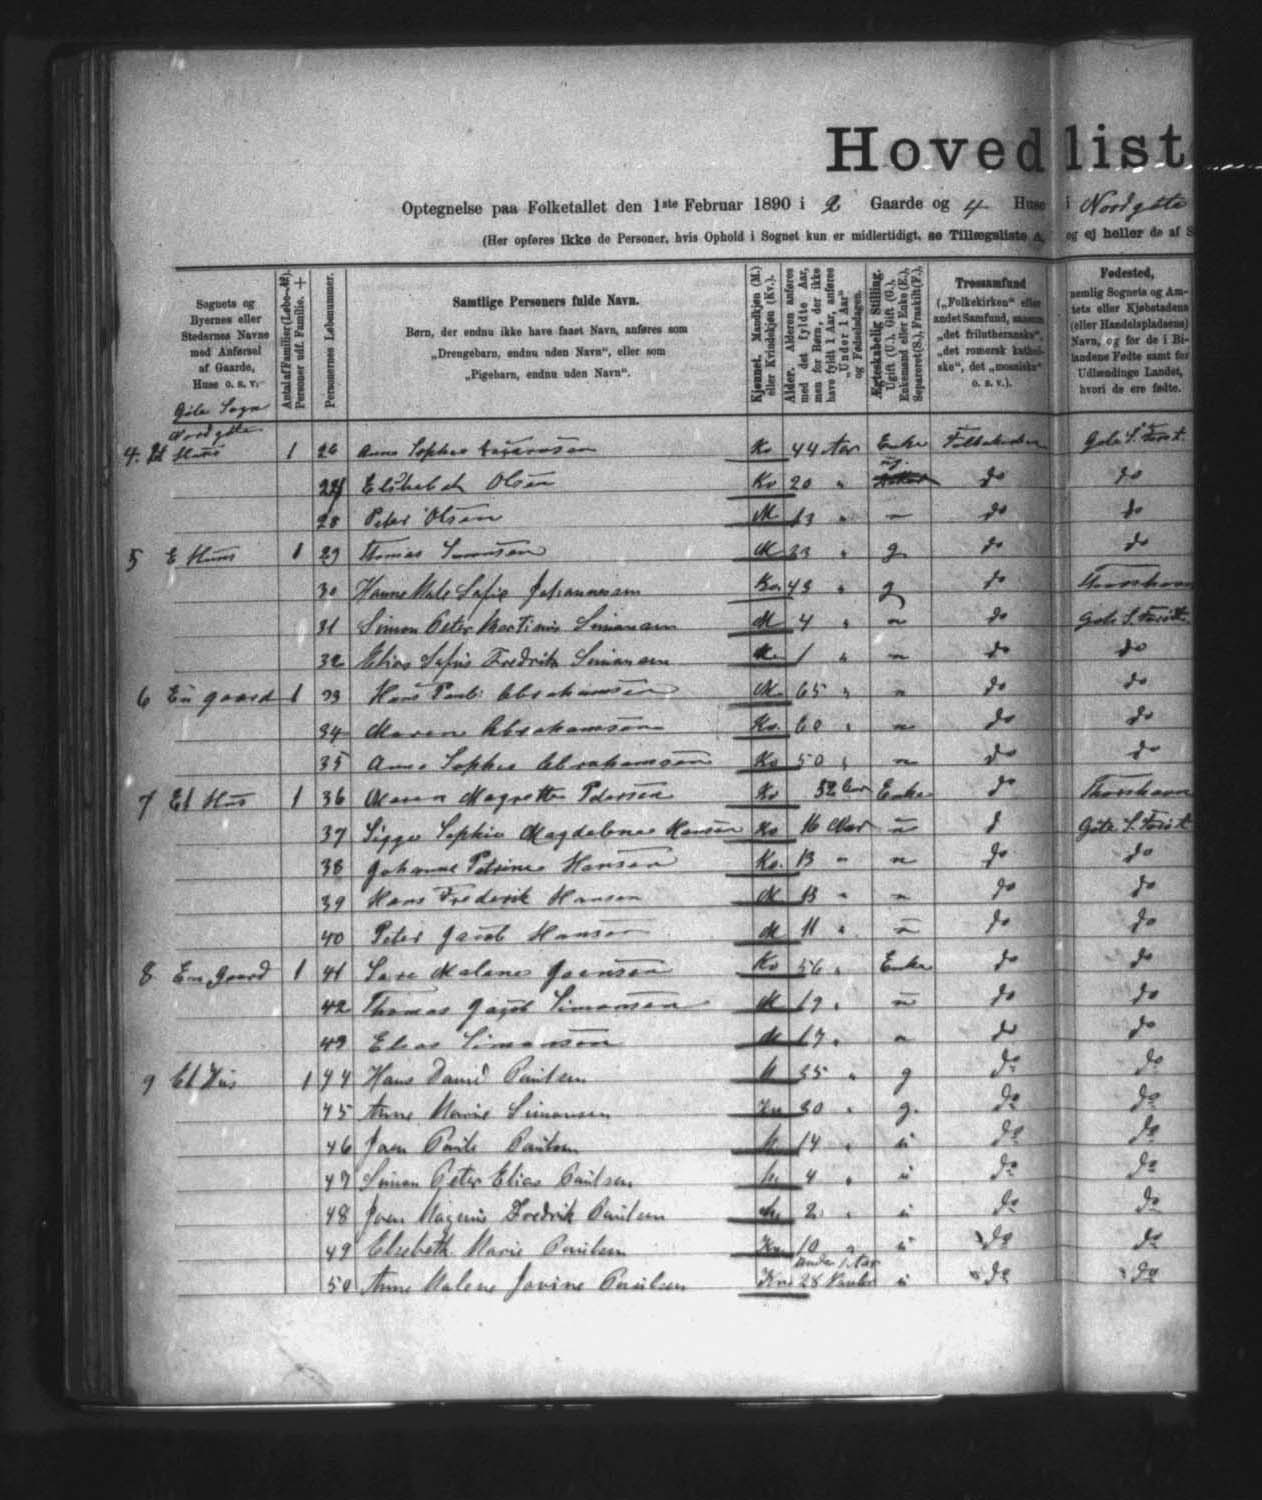 Hovedlist
Optegnelse paa Folketallet den 1ste Februar 1890 i 2 Gaarde og 4 Huse i Nordgøte
(Her opføres ikke de Personer, hvis Ophold i Sognet kun er midlertidigt, se Tillægsliste A, og ej heller de af S
Sognets og Byernes eller Stedernes Navne med Anførsel af Gaarde, Huse o. s. v.
Antal af Familier (Løbe-№). Personer udf. Familie. +
Personernes Løbenummer.
Samtlige Personers fulde Navn.
Børn, der endnu ikke have faaet Navn, anføres som
„Drengebarn, endnu uden Navn", eller som
„Pigebarn, endnu uden Navn".
Kjønnet. Mandkjøn (M.) eller Kvindekjøn (Kv.).
Alder. Alderen anføres med det fyldte Aar, men for Børn, der ikke have fyldt 1 Aar, anføres „Under 1 Aar" og Fødselsdagen.
Ægteskabelig Stilling. Ugift (U.), Gift (G.), Enkemand eller Enke (E.), Separeret (S.), Fraskilt (F.).
Trossamfund („Folkekirken" eller andet Samfund, saasom „det frilutheranske", „det romersk katholske", det „mosaiske" o. s. v.).
Fødested, nemlig Sognets og Amtets eller Kjøbstadens (eller Handelspladsens) Navn, og for de i Bilandene Fødte samt for Udlændinge Landet, hvori de ere fødte.
Gøte Sogn
Nordgøte
4. Et Huus 1 26 Anne Sophie 44 Aar Enke Folkekirken Gøte S.
27 Elsebeth Olsen Kv 20 " ug. do do
28 Peter Olsen M 13 " – do do
5 E Huus 1 29 Thomas Simonsen M 33 " g do do
30 Hanne Male Sofie Johannesen Kv 43 " g do Thorshavn
31 Simon Peter Martinus Simonsen M 4 " u do Gøte S.
32 Elias Fredrik Simonsen M. 1 " u do do
6 En gaard 1 33 Hans Pauli Abrahamsen M. 65 " u do do
34 Maren Abrahamsen Kv. 60 " u do do
35 Anne Sophie Abrahamsen Kv 50 " u do do
7 Et Hus 1 36 Maren Magrethe Pedersen Kv 52 Aar Enke do Thorshavn
37 Sigge Sophie Magdalene Hansen Kv 16 Aar u d Gøte S.
38 Johanne Petrine Hansen Kv. 13 " u do do
39 Hans Frederik Hansen M 13 " u do do
40 Peter Jacob Hansen M 11 " u do do
8 En Gaard 1 41 Malene Joensen Kv 56 " Enke do do
42 Thomas Jacob Simonsen M 19 " u do do
43 Elias Simonsen M 17 " u do do
9 Et Hus 1 44 Hans David Paulsen M 35 " g do do
45 Anne Marie Simonsen Kv 30 " g. do do
46 Joen Paulsen M 14 " u do do
47 Simon Peter Elias Paulsen M 4 " u do do
48 Joen Magnus Fredrik Paulsen M 2 " u do do
49 Elsebeth Marie Paulsen Kv 10 " u do do
50 Anne Malene Jovine Paulsen Kv under 1 Aar 28 u do do